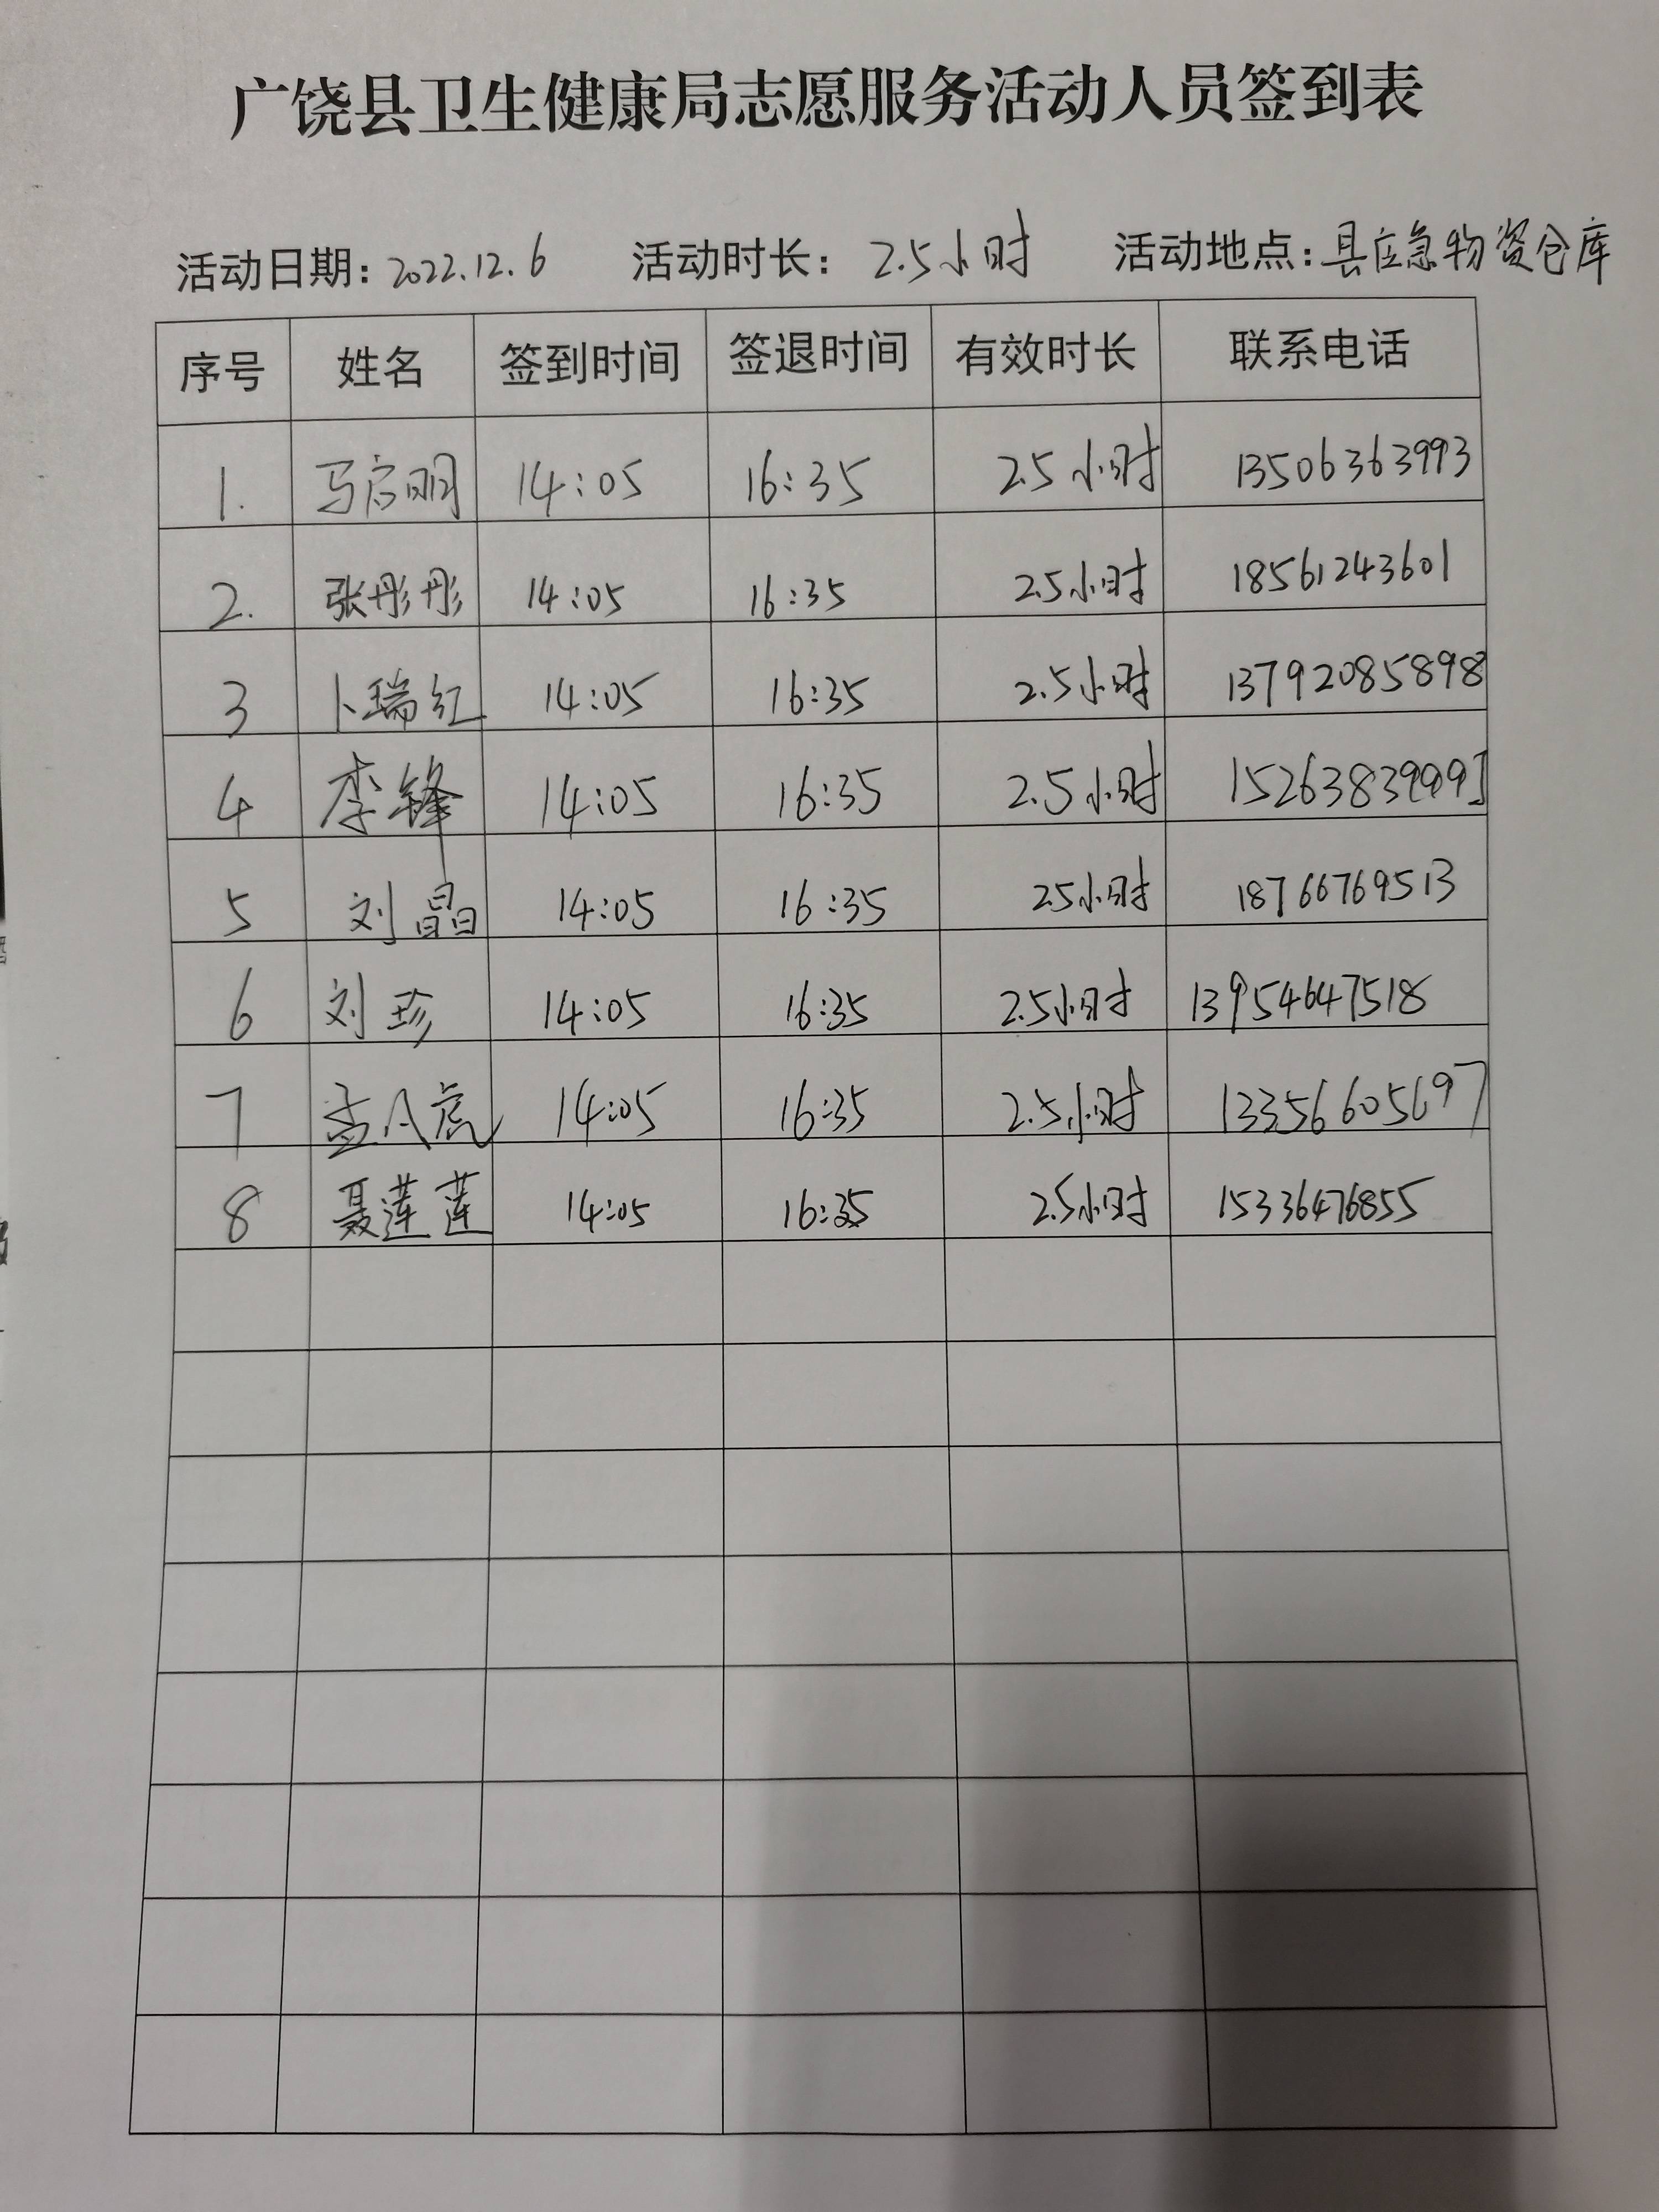 广饶县卫生健康局志愿服务活动人员签到表
活动日期：2022.12.6 活动时长：2.5小时 活动地点：县应急物资仓库
序号 姓名 签到时间 签退时间 有效时长 联系电话
1. 马启明 14:05 16:35 2.5小时 13506363993
2. 张彤彤 14:05 16:35 2.5小时 18561243601
3 卜瑞红 14:05 16:35 2.5小时 13792085898
4 李锋 14:05 16:35 2.5小时
5 刘晶 14:05 16:35 2.5小时 18766769513
6 刘珍 14:05 16:35 2.5小时 13954647518
7 孟凡虎 14:05 16:35 2.5小时 13356605697
8 聂莲莲 14:05 16:35 2.5小时 15336476855